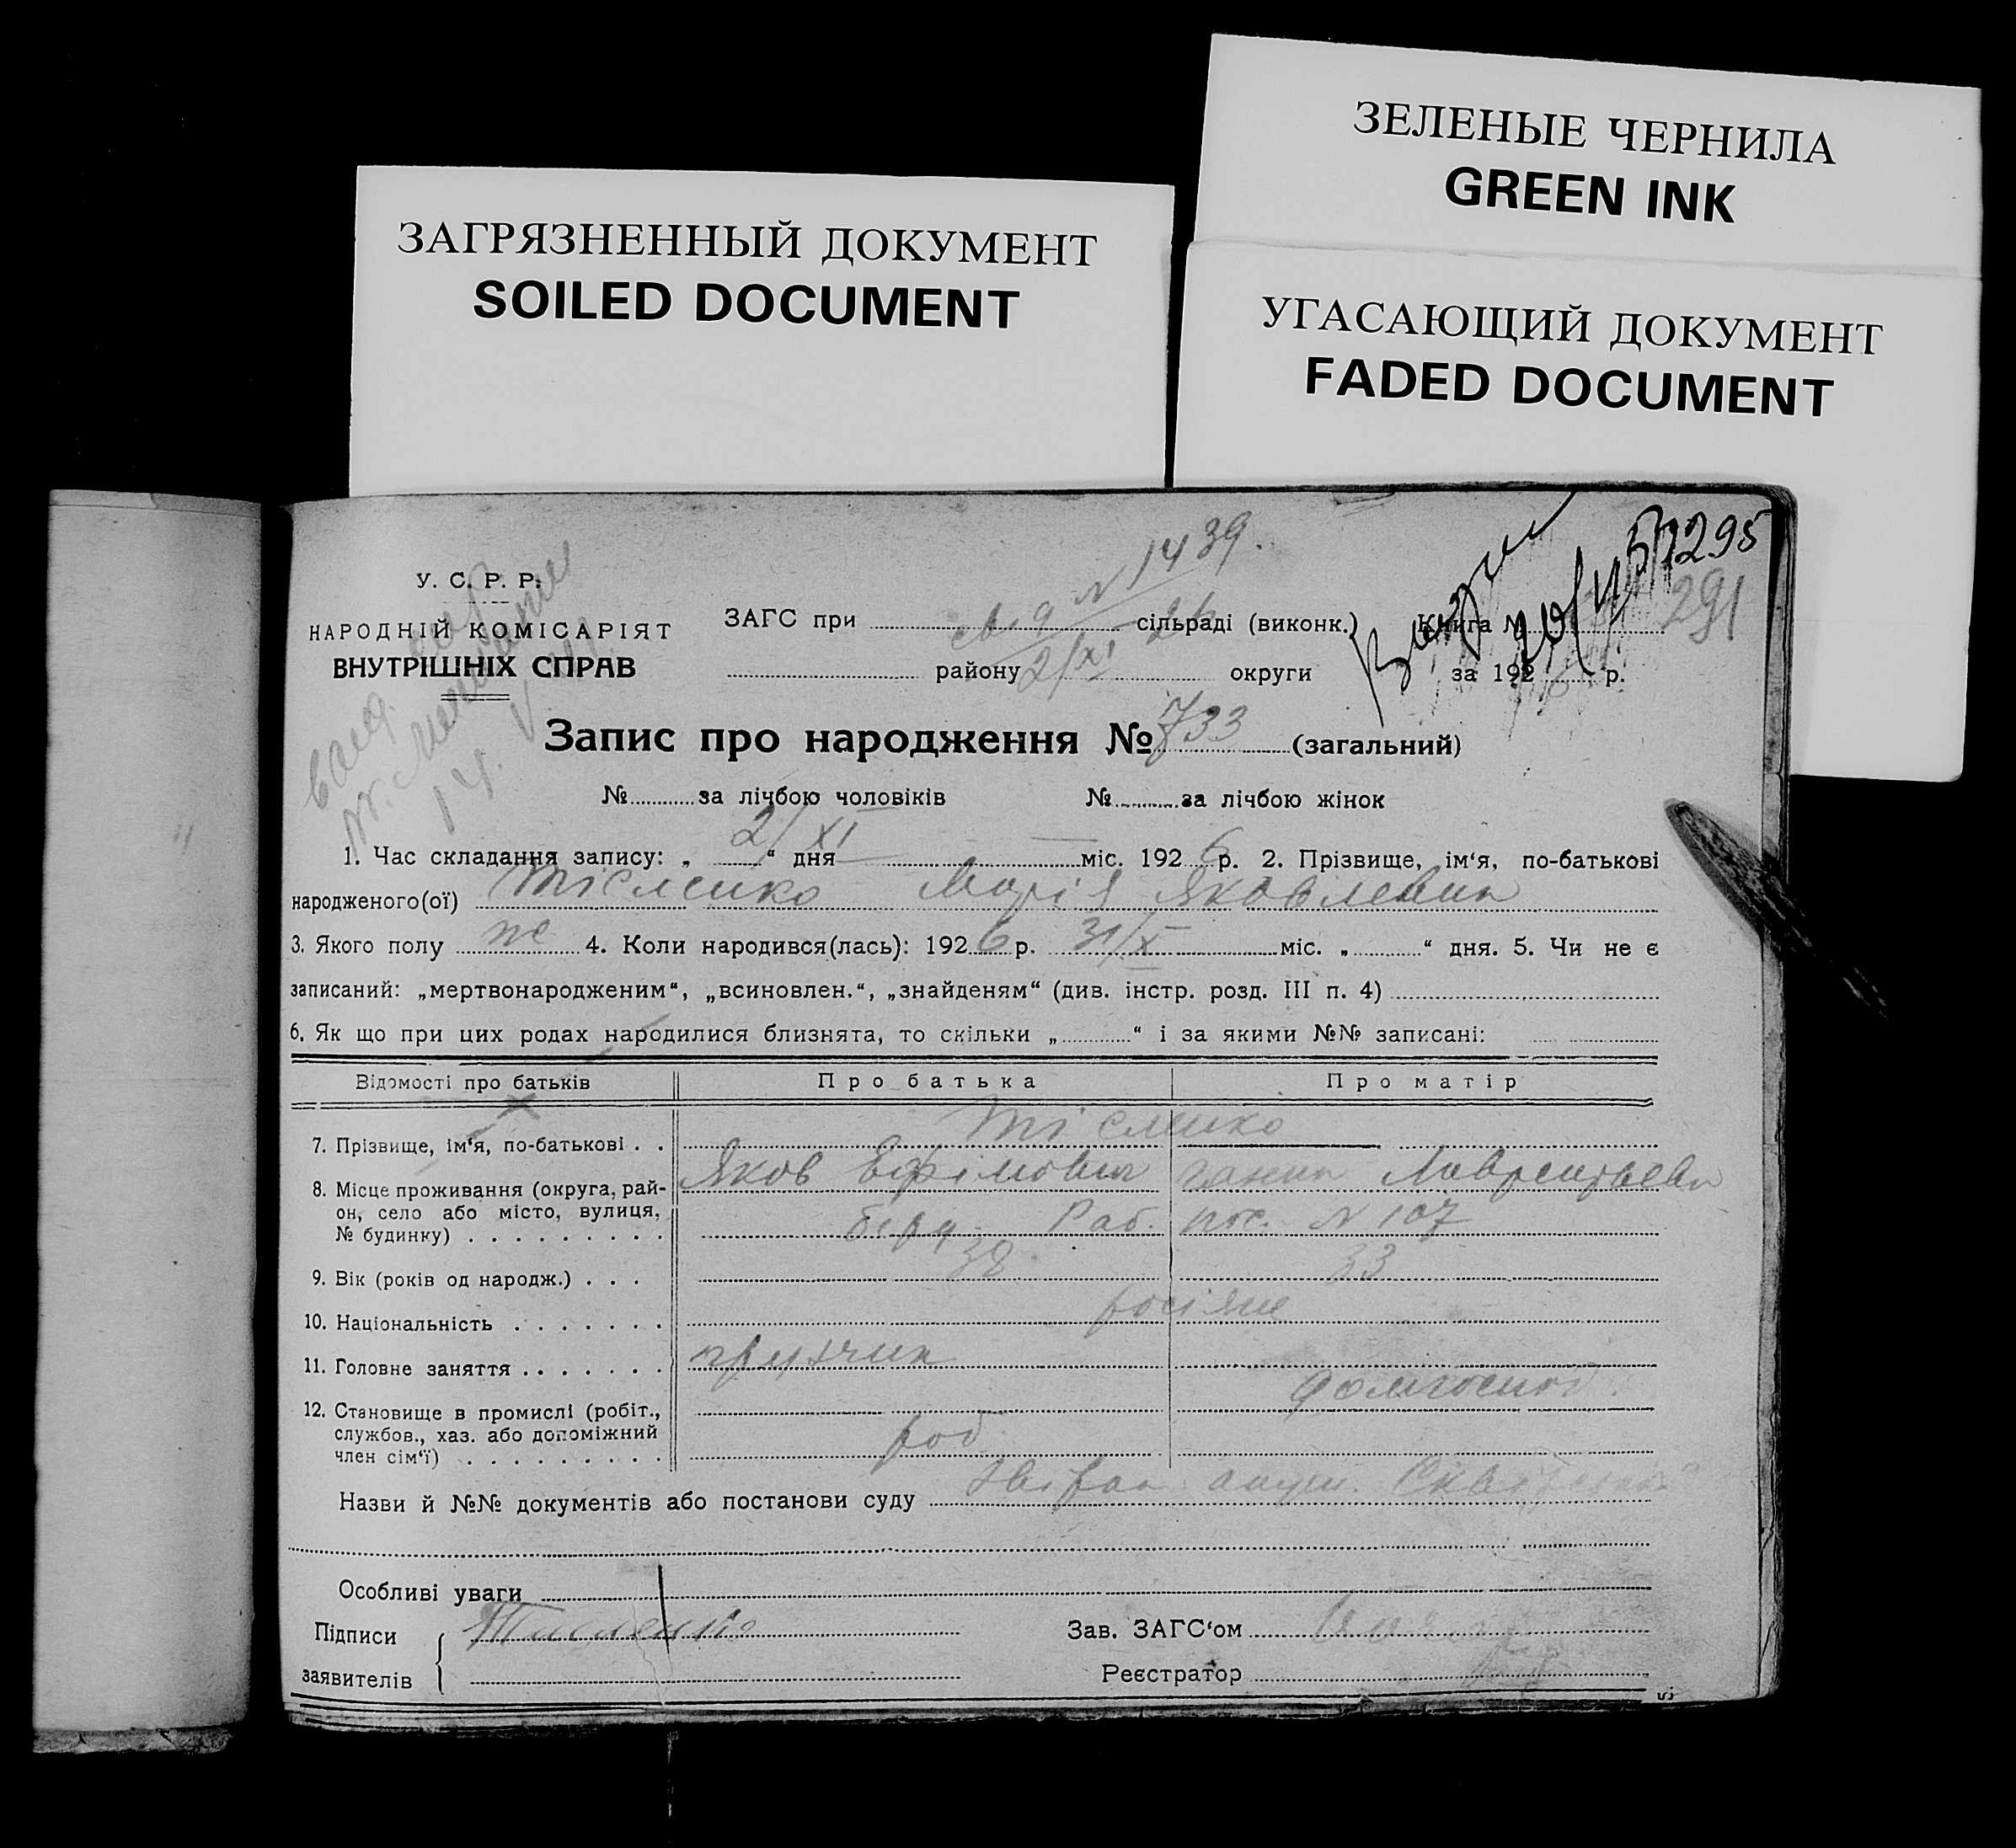 ЗЕЛЕНЫЕ ЧЕРНИЛА
GREEN INK
ЗАГРЯЗНЕННЫЙ ДОКУМЕНТ
SOILED DOCUMENT
УГАСАЮЩИЙ ДОКУМЕНТ
FADED DOCUMENT
295
N 1439.
291
У. С. Р. Р.
НАРОДНІЙ КОМІСАРІЯТ
ВНУТРІШНІХ СПРАВ
ЗАГС при сільраді (виконк.) Книга №
району 2/XI округи за 192 р.
Запис про народження № 733 (загальний)
№ за лічбою чоловіків № за лічбою жінок
1. Час складання запису: „ 2/XI “ дня міс. 192 6 р. 2. Прізвище, ім‘я, по-батькові
народженого(ої) Тісменко Марія Яковлевна
3. Якого полу ж 4. Коли народився(лась): 192 6 р. 31/X міс. „ “ дня. 5. Чи не є
записаний: „мертвонародженим“, „всиновлен.“, „знайденям“ (див. інстр. розд. III п. 4)
6. Як що при цих родах народилися близнята, то скільки „ “ і за якими №№ записані:
Відомості про батьків Про батька Про матір
7. Прізвище, ім‘я, по-батькові . . Тісменко
Яков Ефімович Ганна Лаврентьевна
8. Місце проживання (округа, рай-
он, село або місто, вулиця,
№ будинку) . . . . . . . . . Раб. пос. N 107
9. Вік (років од народж.) . . . 38 33
10. Національність . . . . . . . росіяне
11. Головне заняття . . . . . . . грузчик
домгоспод.
12. Становище в промислі (робіт.,
службов., хаз. або допоміжний
член сім‘ї) . . . . . . . . . роб
Назви й №№ документів або постанови суду
Особливі уваги
Підписи Тисменко Зав. ЗАГС‘ом
заявителів Реєстратор